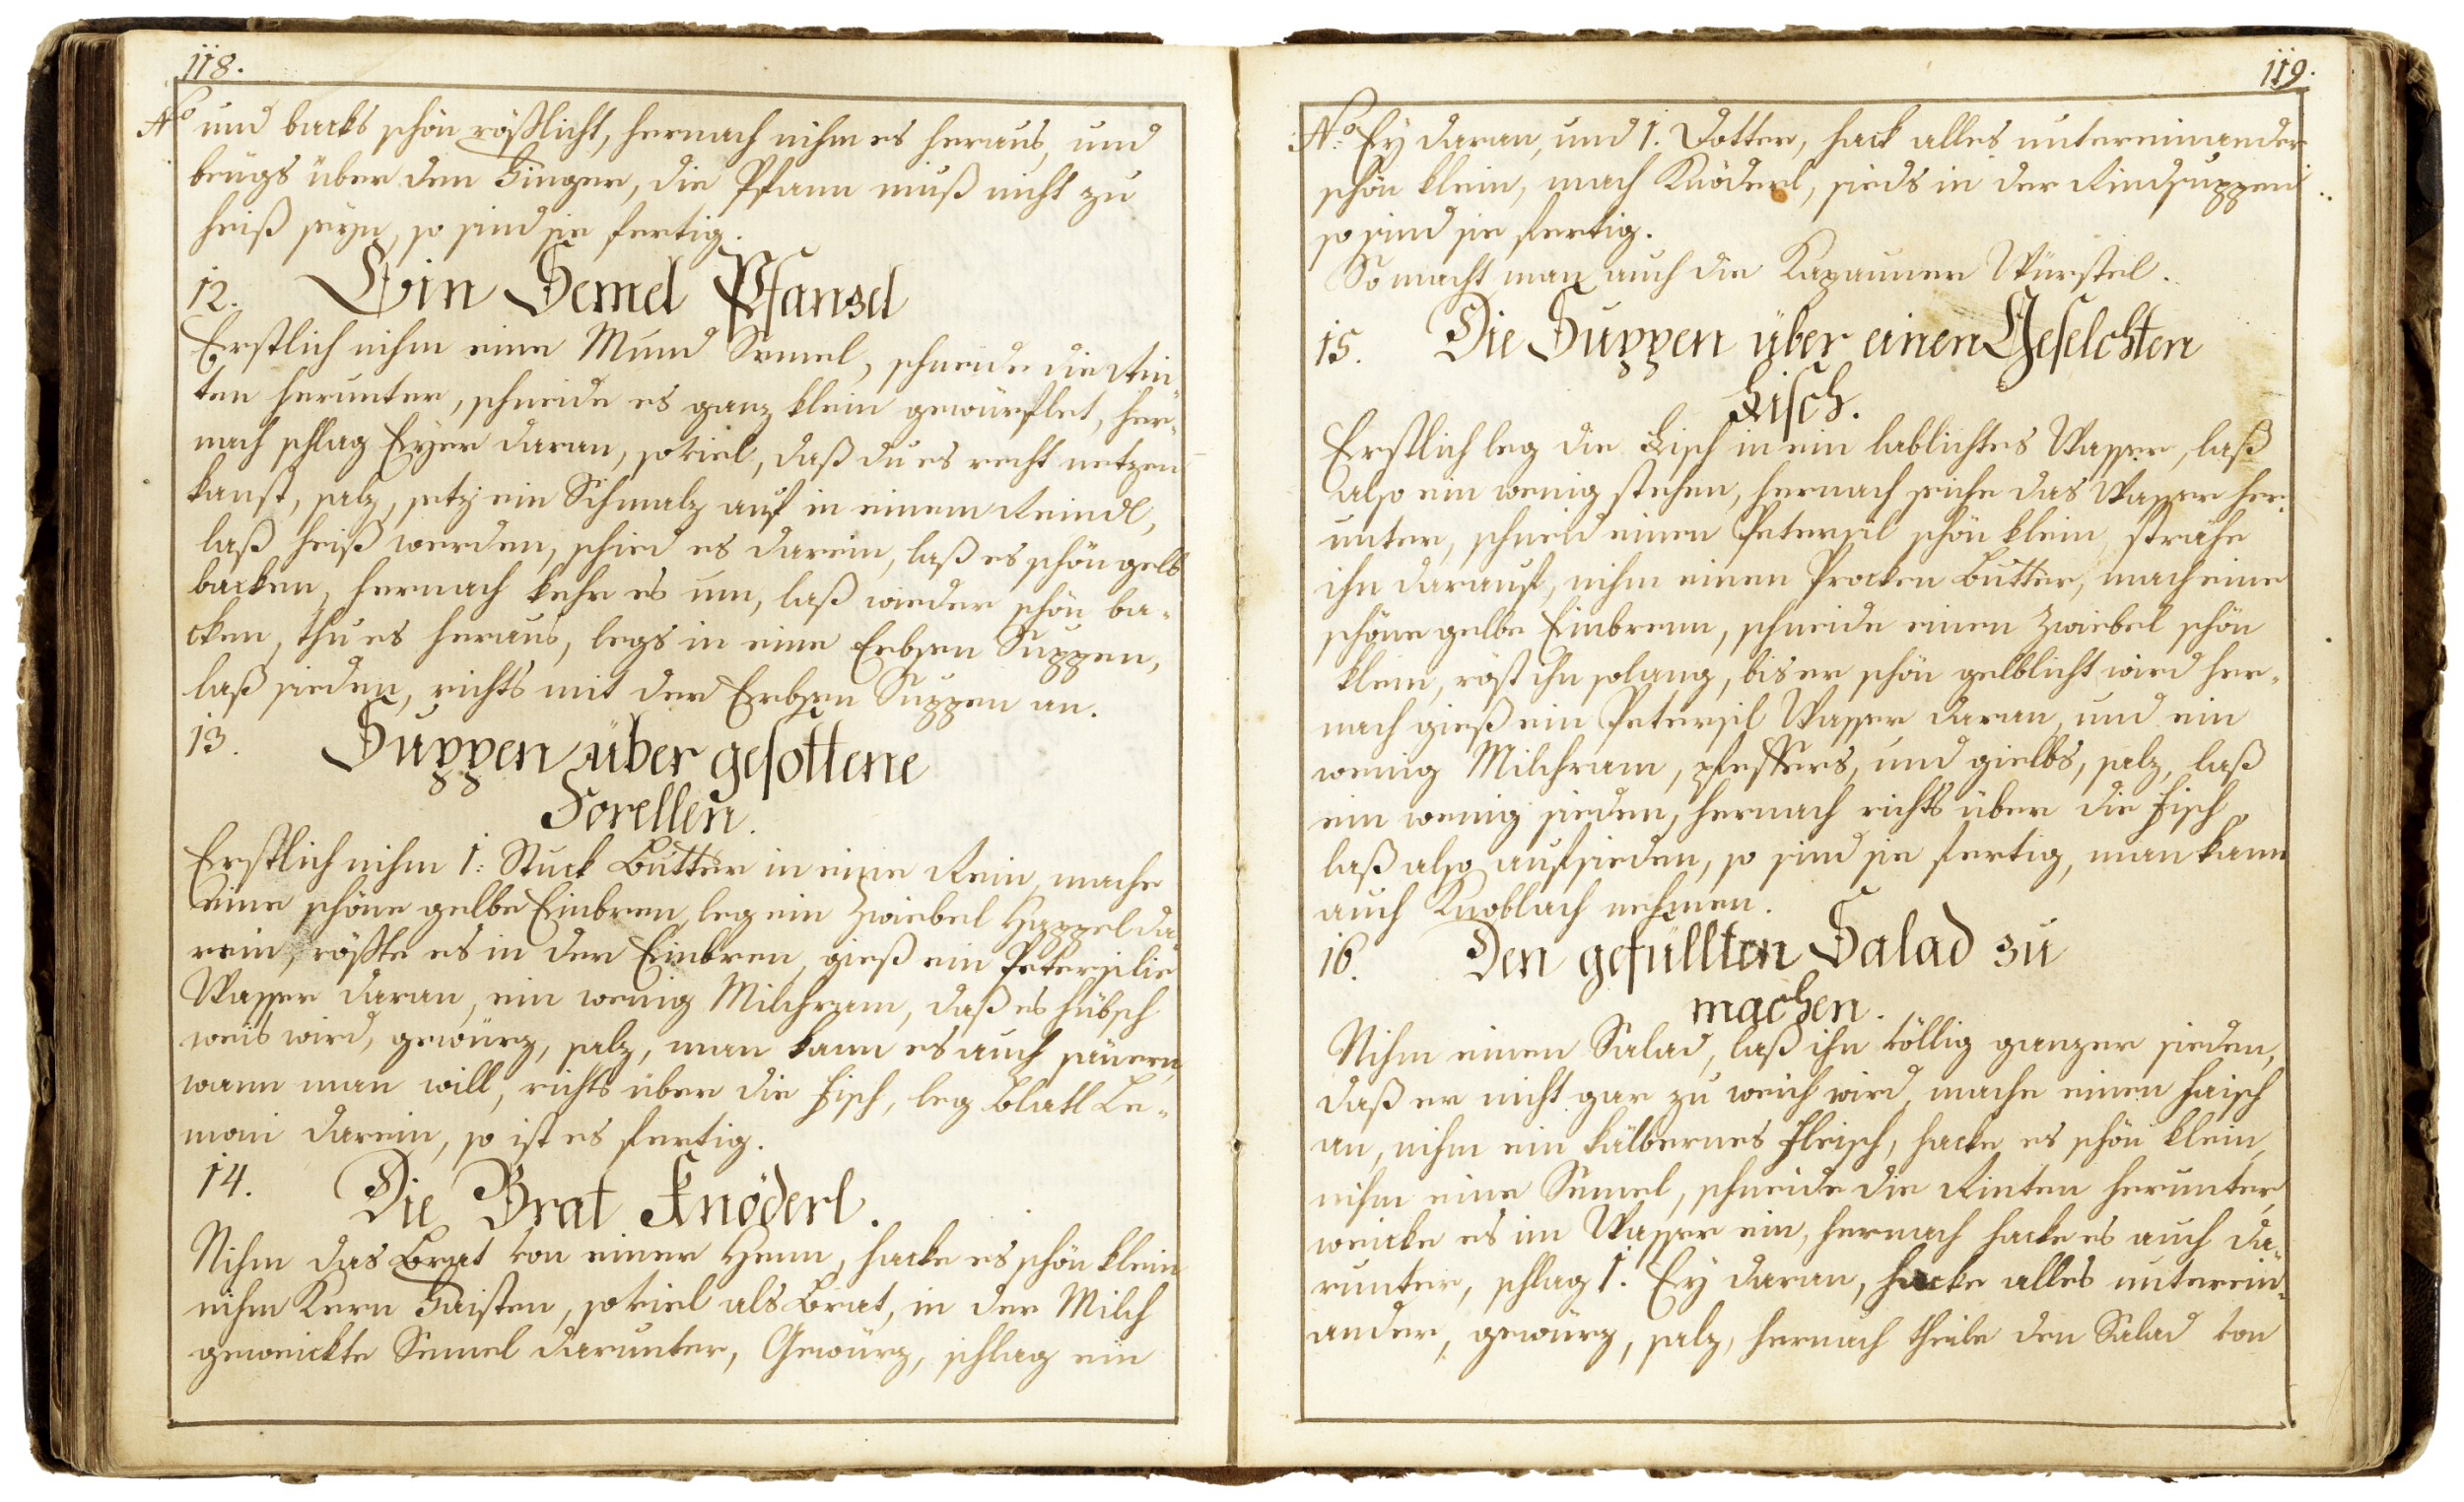 118.
No und backs schön rößlicht, hernach nihm es heraus, und
beugs über den Finger, die Pfann muß nicht zu
heiß seyn, so sind sie fertig.
12. Ein Semel Pfanzel
Erstlich nihm eine Mund Semel, schneide die Rin¬
ten herunter, schneide es ganz klein gewürflet, her¬
nach schlag Eyer daran, soviel, daß du es recht netzen
kanst, salz, setz ein Schmalz auf in einem Reindl,
laß heiß werden, schied es darein, laß es schön gelb
backen, hernach kehr es um, laß wieder schön ba¬
cken, thu es heraus, legs in eine Erbsen Suppen,
laß sieden, richts mit der Erbsen Suppen an.
13. Suppen über gesottene
Forellen.
Erstlich nihm 1: Stuck Butter in eine Rein, mache
eine schöne gelbe Einbren, leg ein Zwiebel Happel da¬
rein, röste es in der Einbren, gieß ein Petersilie
Wasser daran, ein wenig Milchram, daß es hübsch
weis wird, gewürz, salz, man kann es auch säuern,
wann man will, richts über die Fisch, leg Blatl Le¬
moni darein, so ist es fertig.
14. Die Brat Knöderl.
Nihm das Brat von einer Henn, hacke es schön klein
nihm Kern Faisten, soviel als Brat, in der Milch
geweickte Semel darunter, Gewürz, schlag ein
119.
No: Ey daran, und 1. Dotter, hack alles untereinander
schön klein, mach Knöderl, sieds in der Rindsuppen
so sind sie fertig.
So macht man auch die Kapauner Würstel.
15. Die Suppen über einen Geselchten
Fisch.
Erstlich leg die Fisch in ein lablichtes Wasser, laß
also ein wenig stehen, hernach seihe das Wasser her¬
unter, schneid einen Petersil schön klein, strähe
ihn darauf, nihm einen Procken Butter, mach eine
schöne gelbe Einbrenn, schneide einen Zwiebel schön
klein, röst ihn solang, bis er schön gelblicht wird her¬
nach gieß ein Petersil Wasser daran, und ein
wenig Milchram, pfeffers, und gielbs, salz, laß
ein wenig sieden, hernach richts über die Fisch,
laß also aufsieden, so sind sie fertig, man kann
auch Knoblach nehmen.
16. Den gefüllten Salad zu
machen.
Nihm einen Salad, laß ihn völlig ganzer sieden,
daß er nicht gar zu weich wird, mache einen Faisch
an, nihm ein kälbernes Fleisch, hacke es schön klein,
nihm eine Semel, schneide die Rinten herunter,
weicke es im Wasser ein, hernach hacke es auch da¬
runter, schlag 1. Ey daran, hacke alles unterein¬
ander, gewürz, salz, hernach theile den Salad von